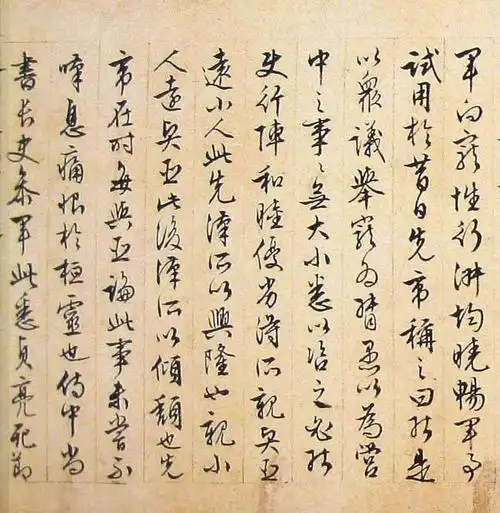 軍向寵性行淑均曉暢軍事
試用於昔日先帝稱之曰能是
以眾議舉寵為督愚以為營
中之事〻無大小悉以咨之必能
使行陣和睦優劣得所親賢臣
遠小人此先漢所以興隆也親小
人遠賢臣此後漢所以傾頹也先
帝在時每與臣論此事未嘗不
嘆息痛恨於桓靈也侍中尚
書長史參軍此悉貞亮死節